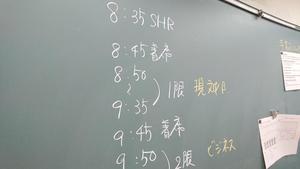 8:35 SHR
8:45 着席
8:50
〜
9:35
1限 現文P
9:45 着席
9:50
2限 ビジネス